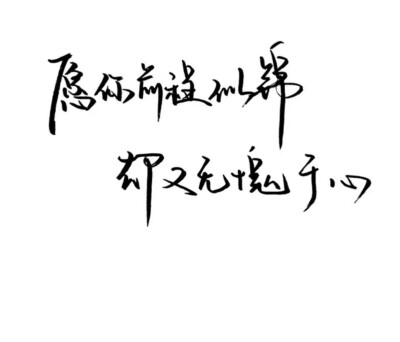 愿你前程似锦
却又无愧于心